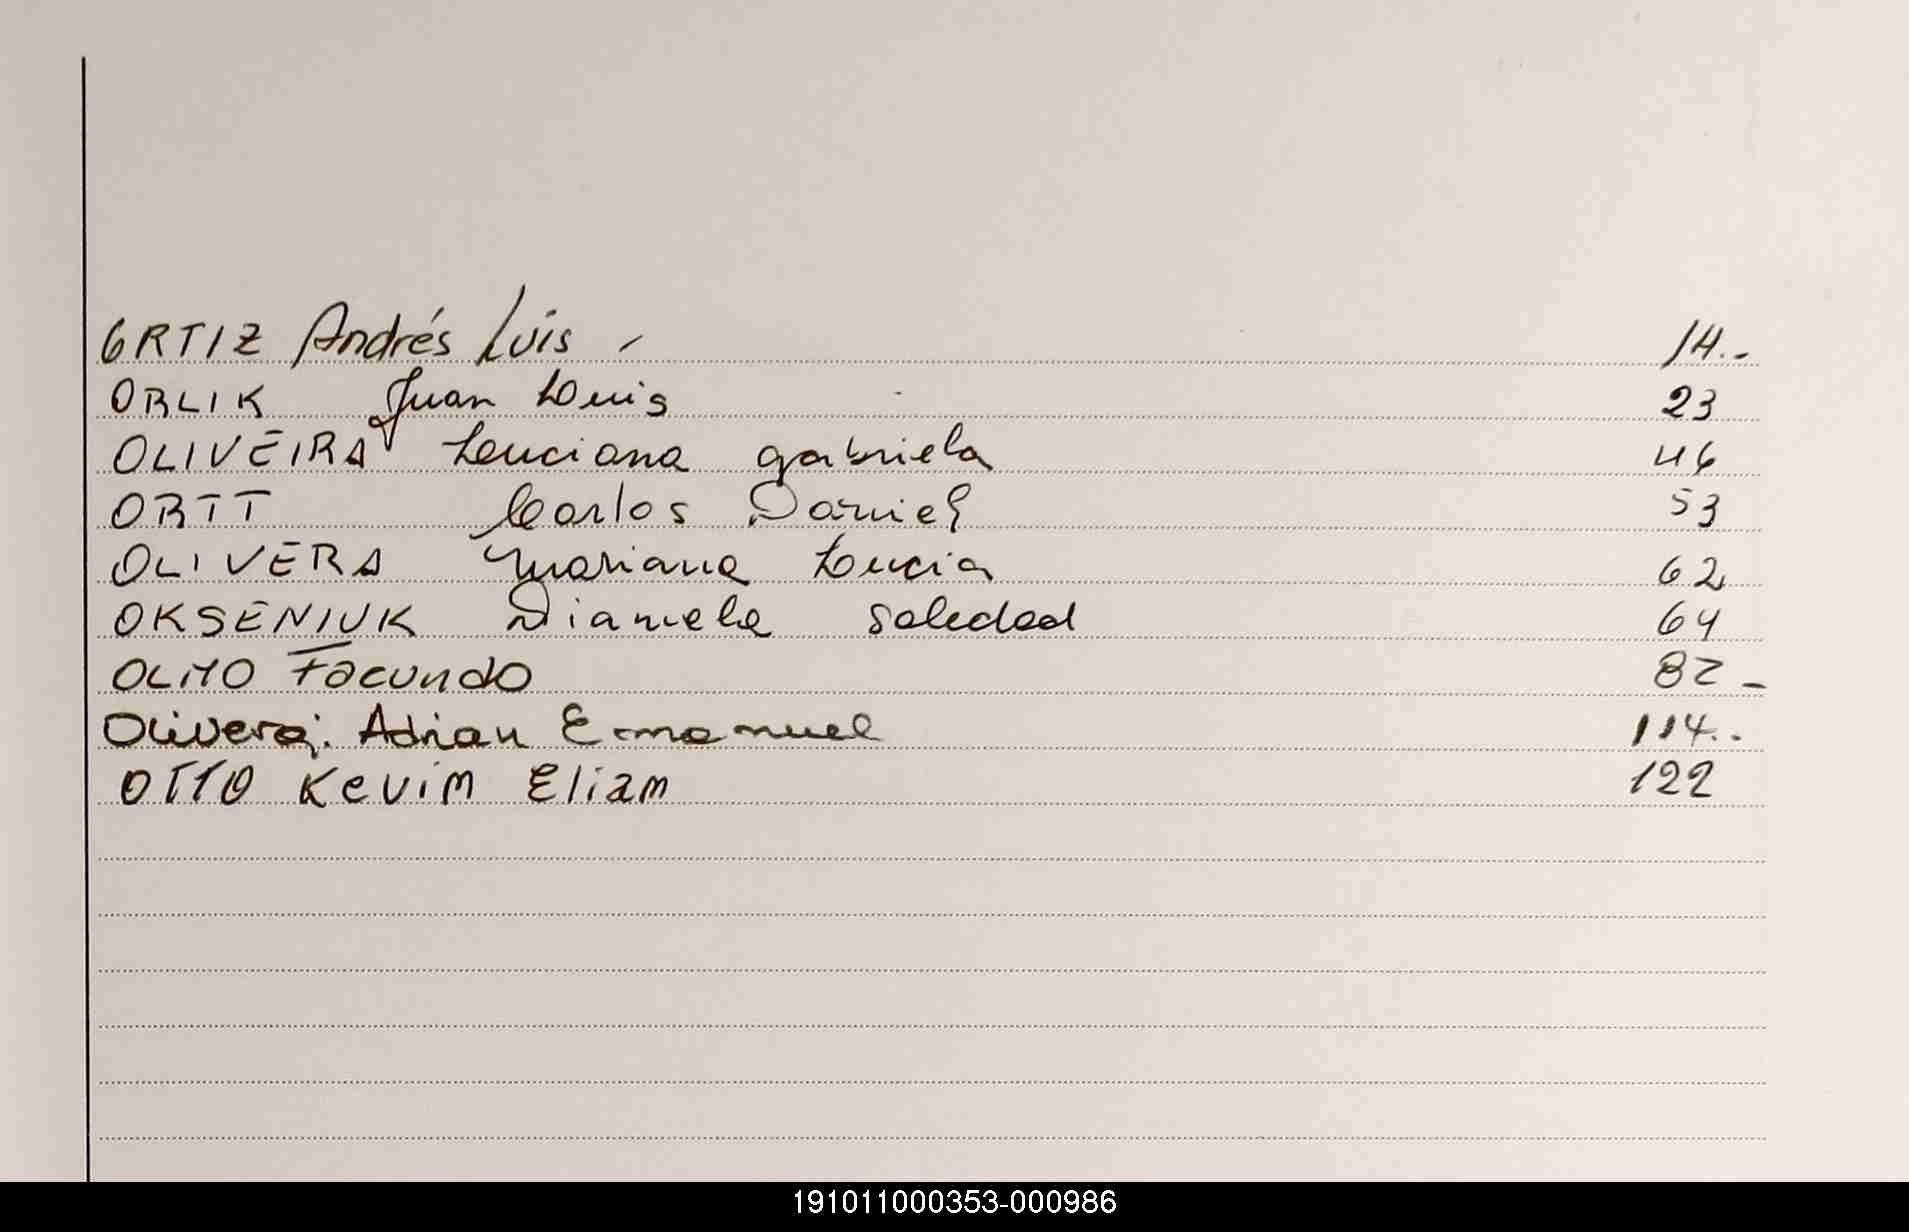 ORTIZ Andrés Luis 14.-
ORLIK Juan Luis 23
OLIVEIRA Luciana gabriela 46
ORTT Carlos Daniel 53
OLIVERA Mariana Lucia 62
OKSENIUK Dianela Soledad 64
OLMO Facundo 82 -
Olivera. Adrian Emanuel 114..
OTTO Kevim Eliam 122
191011000353-000986